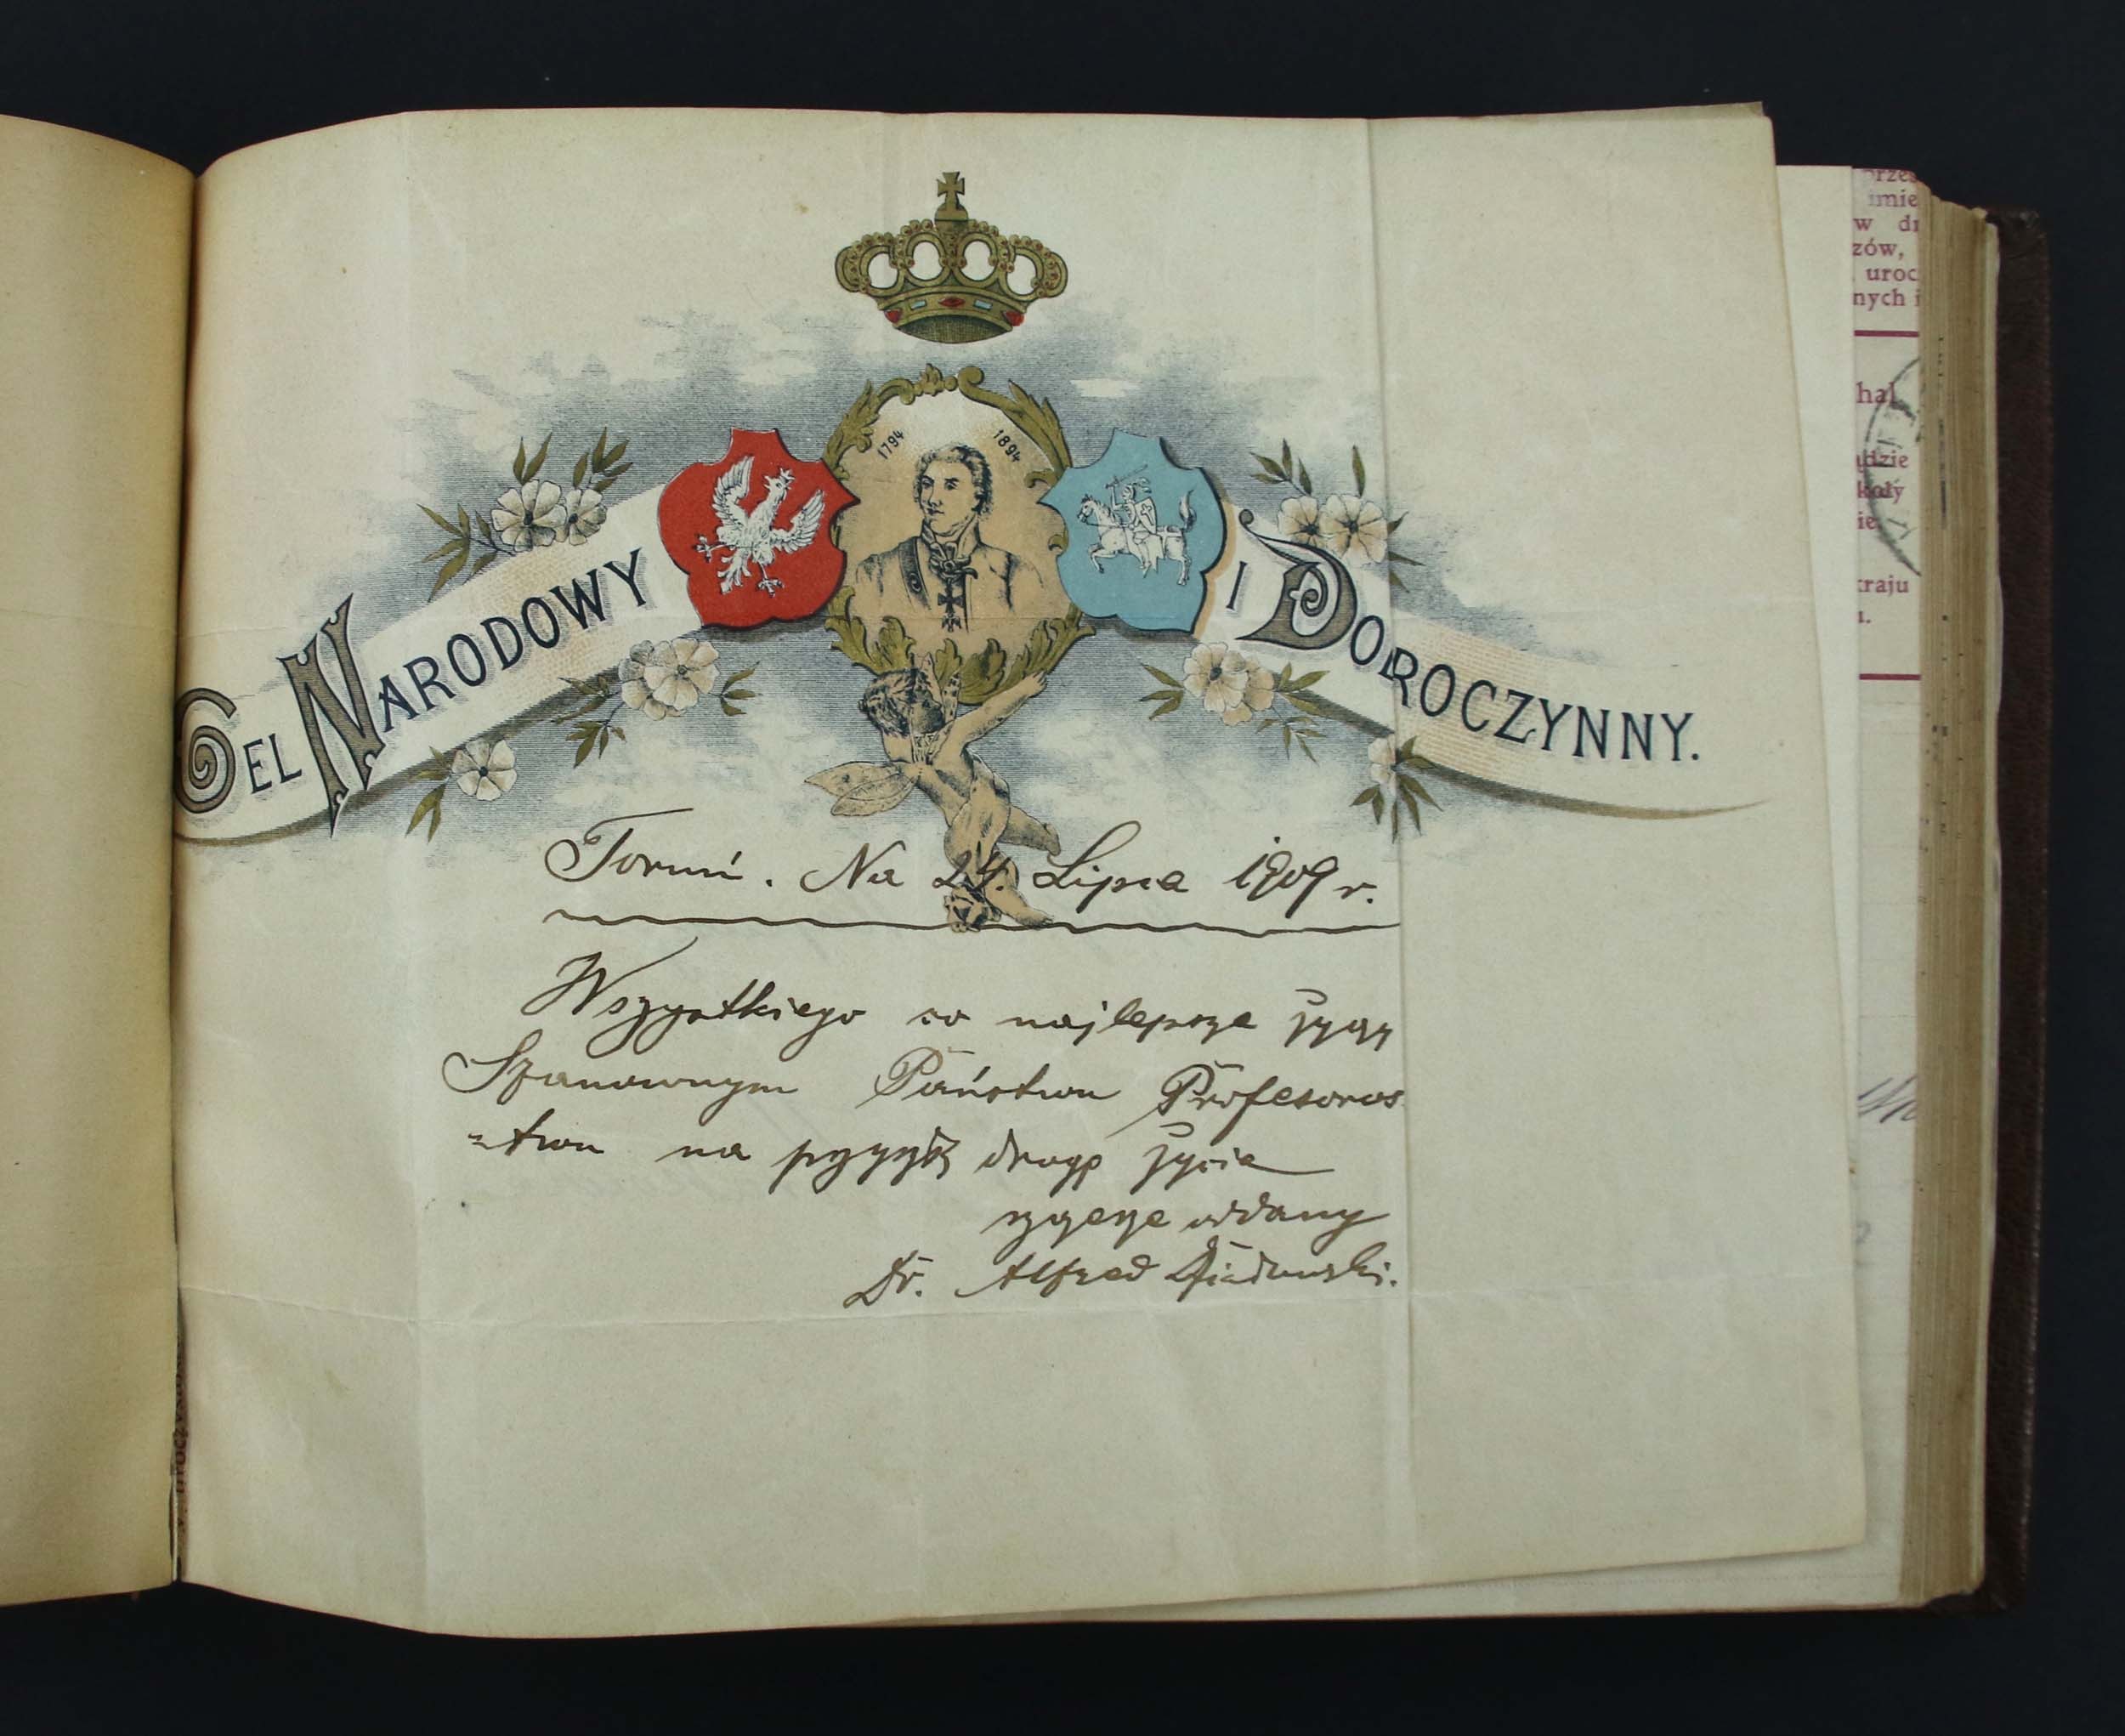 1794 1894
CEL NARODOWY I DOBROCZYNNY.
Toruń. Na 24. Lipca 1909 r.
Wszystkiego co najlepsze życzy
Szanownym Państwu Profesoros
=twu na przyszłą drogę życia
szczerze oddany
Dr. Alfred
imie
w
zów,
uroc
nych i
hal
ądzie
koły
ie
kraju